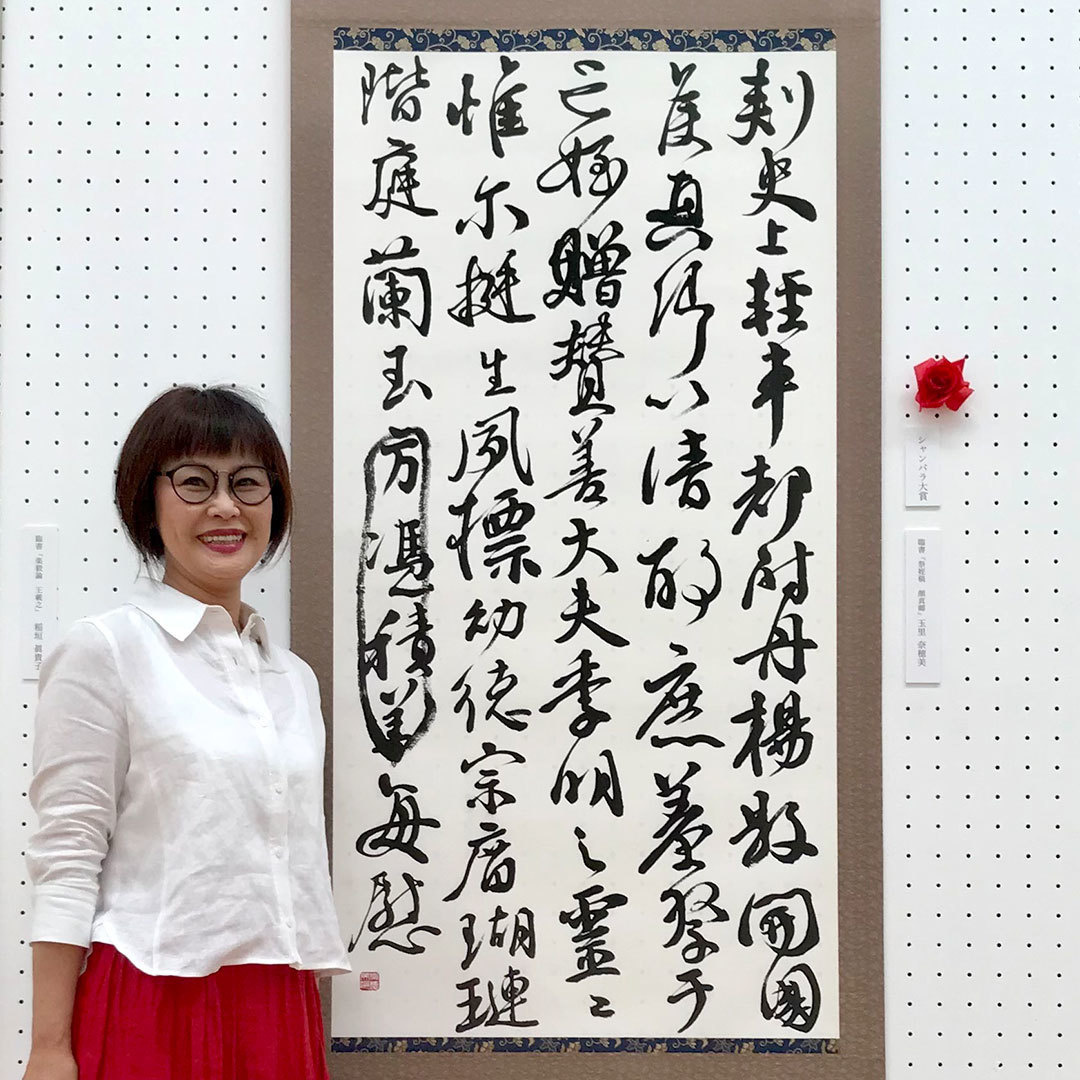 刺史上輕車都尉丹楊縣開國
侯真卿以清酌庶羞祭于
亡姪贈贊善大夫季明之靈曰
惟尔挺生夙標幼德宗廟瑚璉
階庭蘭玉方憑積善每慰
シャンバラ大賞
臨書「祭姪稿 顔真卿」玉里 奈穂美
臨書「楽毅論 王羲之」 稲垣 眞貴子